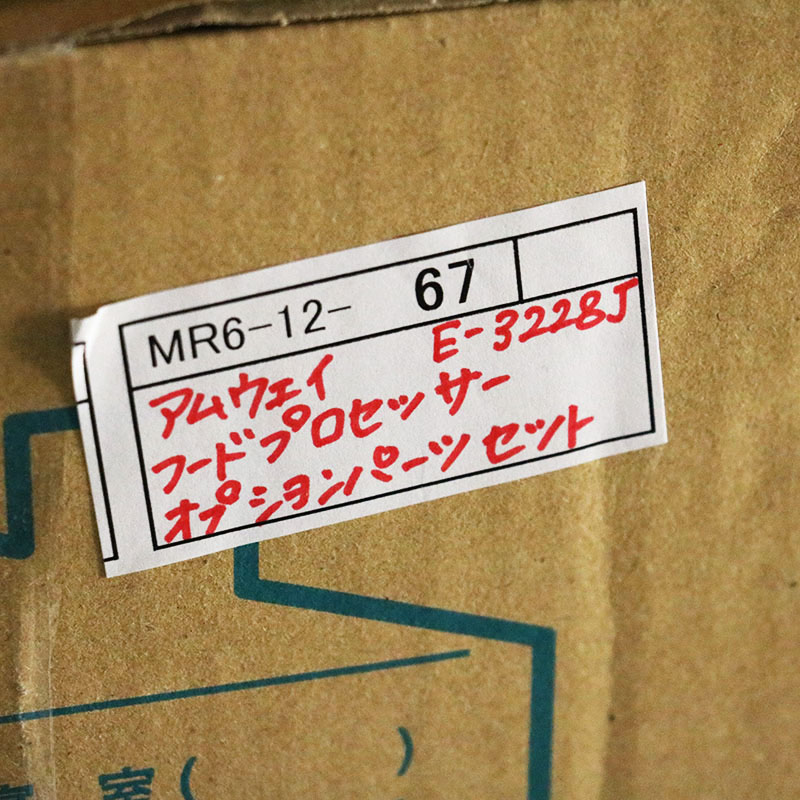 MR6-12- 67
アムウェイ E-3228J
フードプロセッサー
オプションパーツセット
室( )